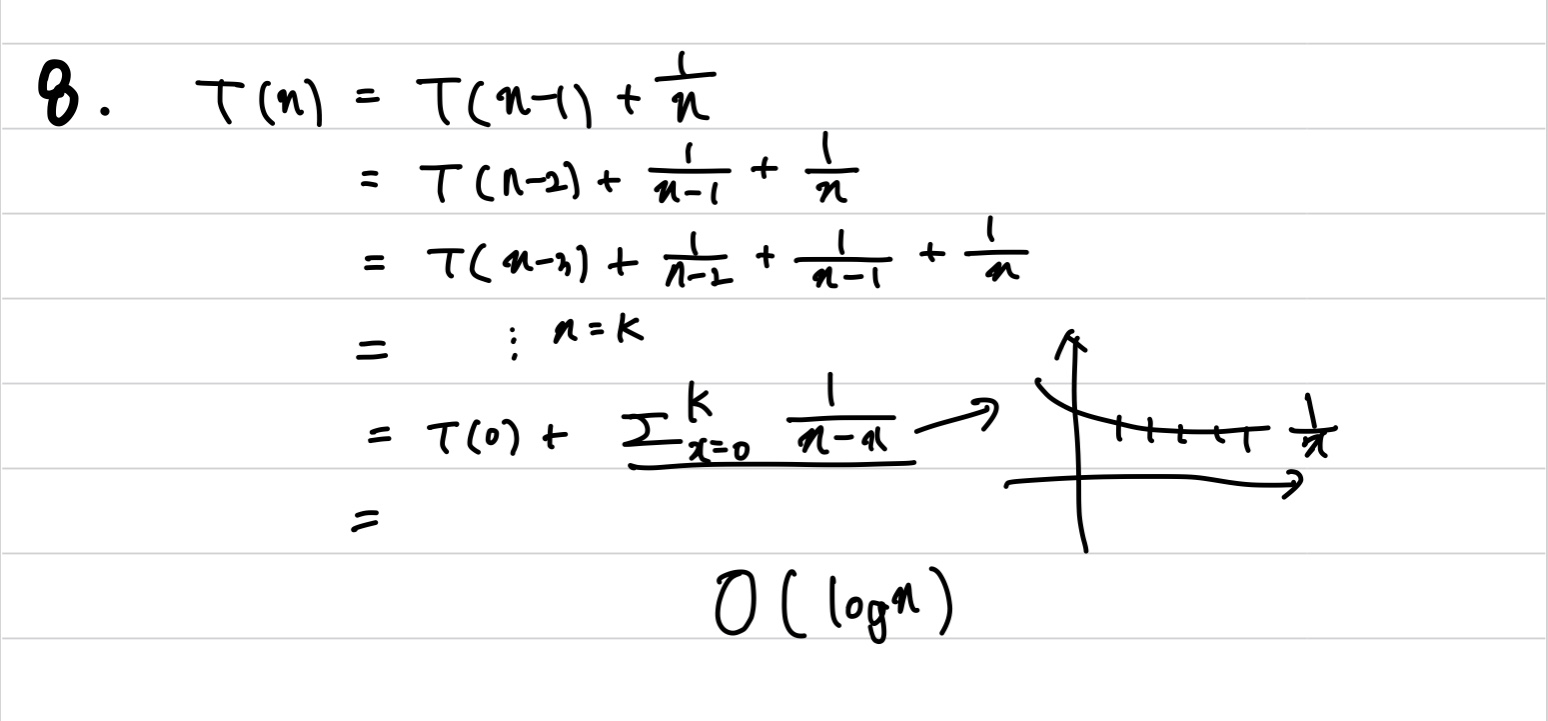 8. T(n) = T(n-1) + 1/n
= T(n-2) + 1/(n-1) + 1/n
= T(n-3) + 1/(n-2) + 1/(n-1) + 1/n
= ⋮ n = k
= T(0) + Σ_{x=0}^{k} 1/(n-x) → 1/x
=
O(log n)